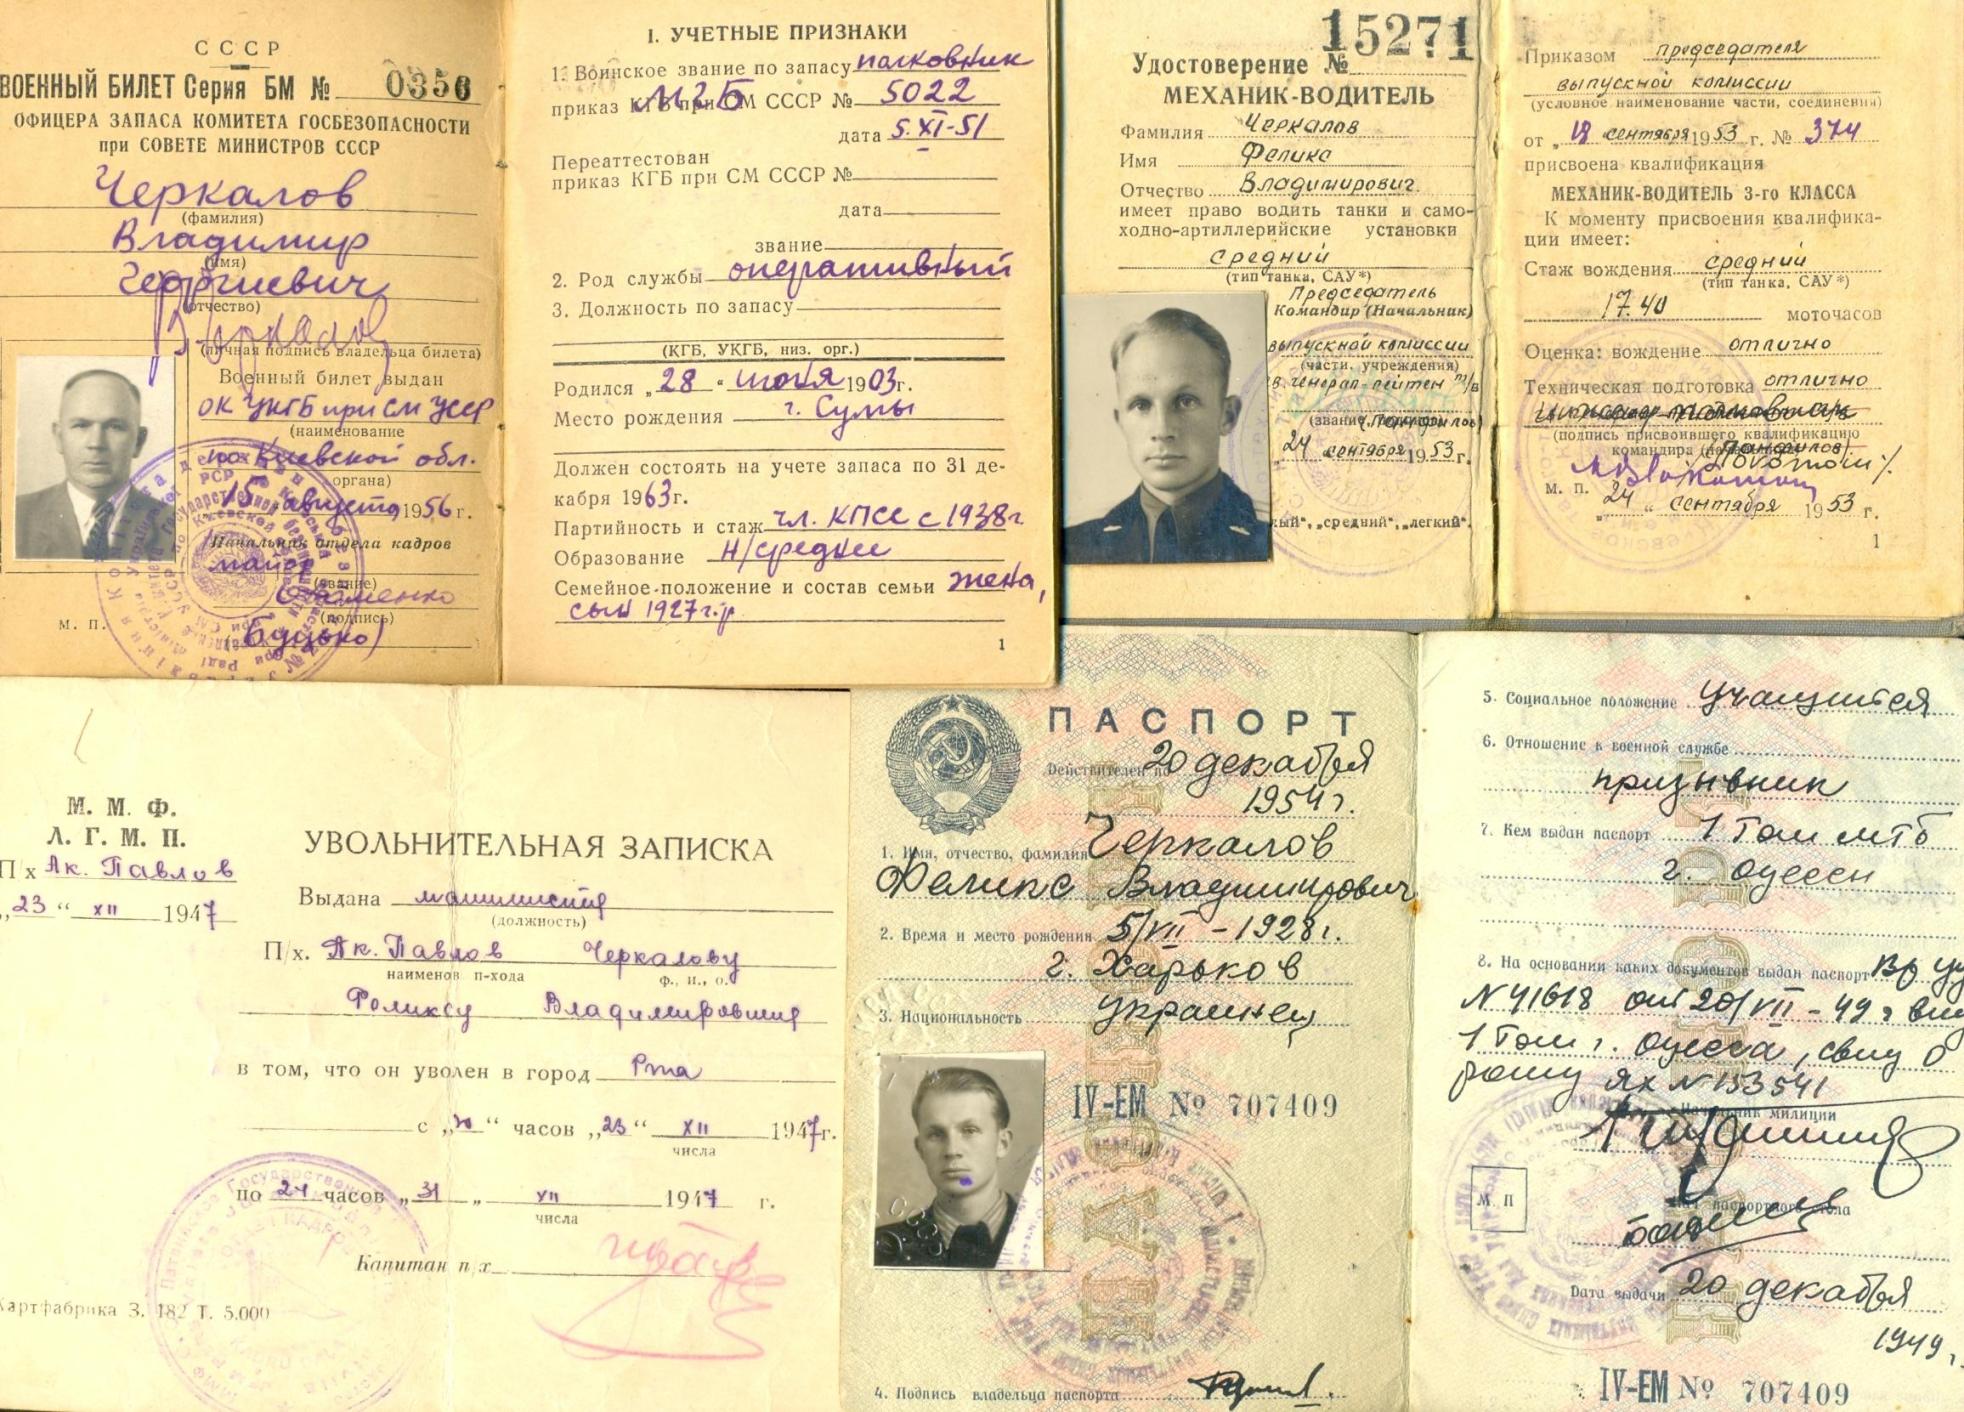 СССР
ВОЕННЫЙ БИЛЕТ Серия БМ № 0356
ОФИЦЕРА ЗАПАСА КОМИТЕТА ГОСБЕЗОПАСНОСТИ
при СОВЕТЕ МИНИСТРОВ СССР
Черкалов
(фамилия)
Владимир
(имя)
Георгиевич
(отчество)
(личная подпись владельца билета)
Военный билет выдан
ОК УКГБ при СМ УССР
(наименование
по Киевской обл.
органа)
15 августа 1956 г.
Начальник отдела кадров
майор
(звание)
(подпись)
(Будько)
М. П.
I. УЧЕТНЫЕ ПРИЗНАКИ
1. Воинское звание по запасу полковник
приказ КГБ при СМ СССР № 5022
МГБ
дата 5.XI-51
Переаттестован
приказ КГБ при СМ СССР №
дата
звание
2. Род службы оперативный
3. Должность по запасу
(КГБ, УКГБ, низ. орг.)
Родился „28“ июня 1903 г.
Место рождения г. Сумы
Должен состоять на учете запаса по 31 де-
кабря 1963 г.
Партийность и стаж чл. КПСС с 1938 г
Образование н/средн
Семейное положение и состав семьи жена,
сын 1927 г.р
1
15271
Удостоверение №
МЕХАНИК-ВОДИТЕЛЬ
Фамилия Черкалов
Имя Феликс
Отчество Владимирович.
имеет право водить танки и само-
ходно-артиллерийские установки
средний
(тип танка, САУ*)
Председатель
Командир (Начальник)
выпускной комиссии
(части, учреждения)
генерал-лейтен т/в
(звание,
(Панфилов)
„24 сентября 1953 г.
„средний“, „легкий“.
Приказом председателя
выпускной комиссии
(условное наименование части, соединения)
от „18 сентября 1953 г. № 374
присвоена квалификация
МЕХАНИК-ВОДИТЕЛЬ 3-го КЛАССА
К моменту присвоения квалифика-
ции имеет:
Стаж вождения средний
(тип танка, САУ*)
17.40 моточасов
Оценка: вождение отлично
Техническая подготовка отлично
(подпись присвоившего квалификацию
командира
м. п. „24“ сентября 1953 г.
1
М. М. Ф.
Л. Г. М. П.
П/х Ак. Павлов
„23“ XII 1947
УВОЛЬНИТЕЛЬНАЯ ЗАПИСКА
Выдана машинисту
(должность)
П/х. Ак. Павлов Черкалову
наименов п-хода ф., и., о.
Феликсу Владимировичу
в том, что он уволен в город Рига
с часов „23“ XII 1947 г.
числа
по 24 часов „31„ XII 1947 г.
числа
Капитан п/х
Картфабрика З. 182 Т. 5.000
ПАСПОРТ
Действителен по 20 декабря
1954 г.
1. Имя, отчество, фамилия Черкалов
Феликс Владимирович
2. Время и место рождения 5/VII - 1928 г.
г. Харьков
3. Национальность украинец
IV-ЕМ № 707409
4. Подпись владельца паспорта
5. Социальное положение учащийся
6. Отношение к военной службе
призывник
7. Кем выдан паспорт 1 Гом мтб
г. Одессы
8. На основании каких документов выдан паспорт Вр уд
N 41618 от 20/VII - 49 г
1 Гом г. Одесса, свид о
рожд ЯХ N 153541
Начальник милиции
М П
Дата выдачи 20 декабря
1949 г.
IV-ЕМ № 707409